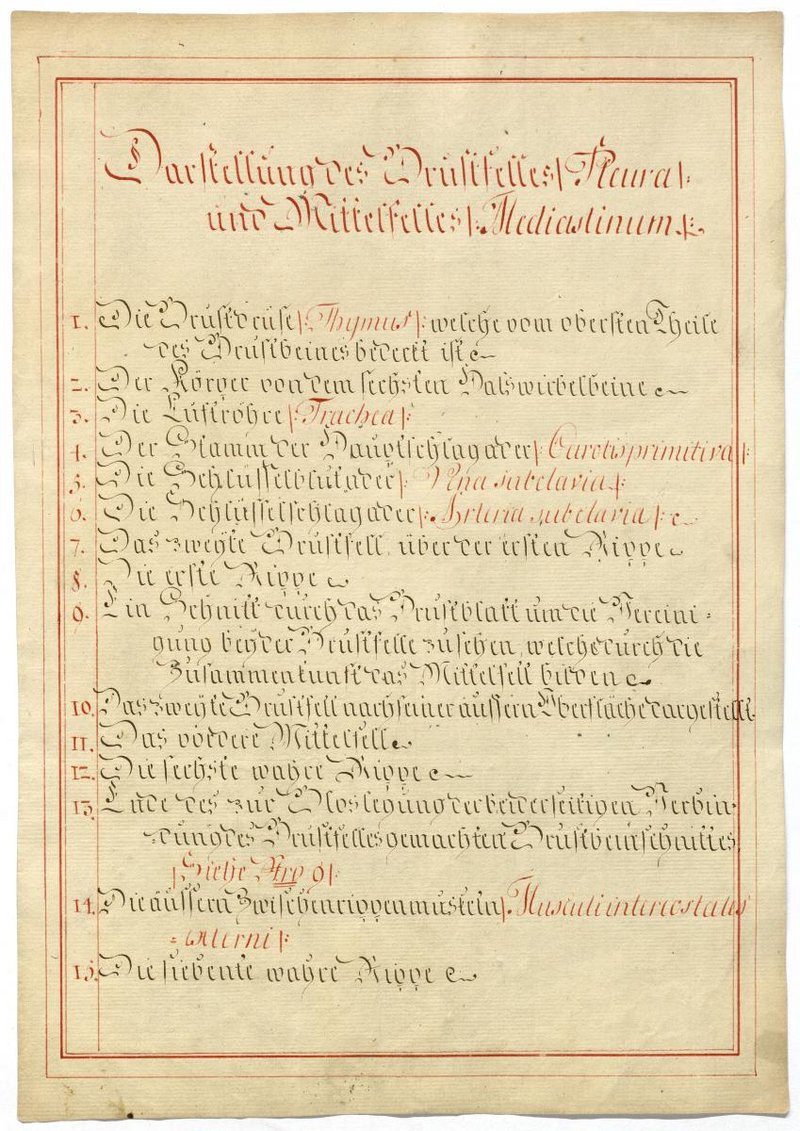 Darstellung des Brustfelles |: Pleura :|
und Mittelfelles |: Mediastinum :|
1. Die Brustdrüse |: Thymus :| welche vom obersten Theile
des Brustbeines bedeckt ist
2. Der Körper von dem sechsten Halswirbelbeine
3. Die Luftröhre |: Trachea :|
4. Der Stamm der Hauptschlagader |: Carotis primitiva :|
5. Die Schlüsselblutader |: Vena subclavia :|
6. Die Schlüsselschlagader |: Arteria subclavia :|
7. Das zweyte Brustfell, über der ersten Rippe
8. Die erste Rippe
9. Ein Schnitt durch das Brustblatt um die Vereini-
gung beyder Brustfelle zu sehen, welche durch die
Zusammenkunft das Mittelfell bilden
10. Das zweyte Brustfell nach seiner äussern Oberfläche dargestellt.
11. Das vordere Mittelfell
12. Die sechste wahre Rippe
13. Ende des zur Bloslegung der beiderseitigen Verbin-
dung des Brustfelles gemachten Brustbeinschnittes
|: Siehe Nro 9 :|
14. Die äussern Zwischenrippenmuskeln |: Musculi intercostales
externi :|
15. Die siebente wahre Rippe